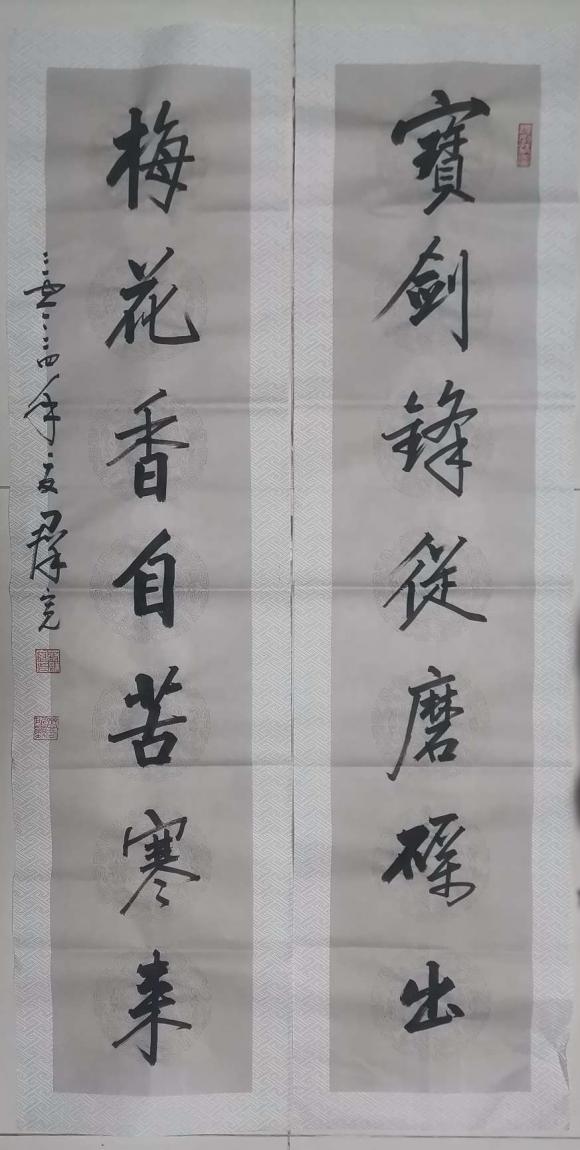 寶劍鋒從磨礪出
梅花香自苦寒来
二零二四年夏群亮